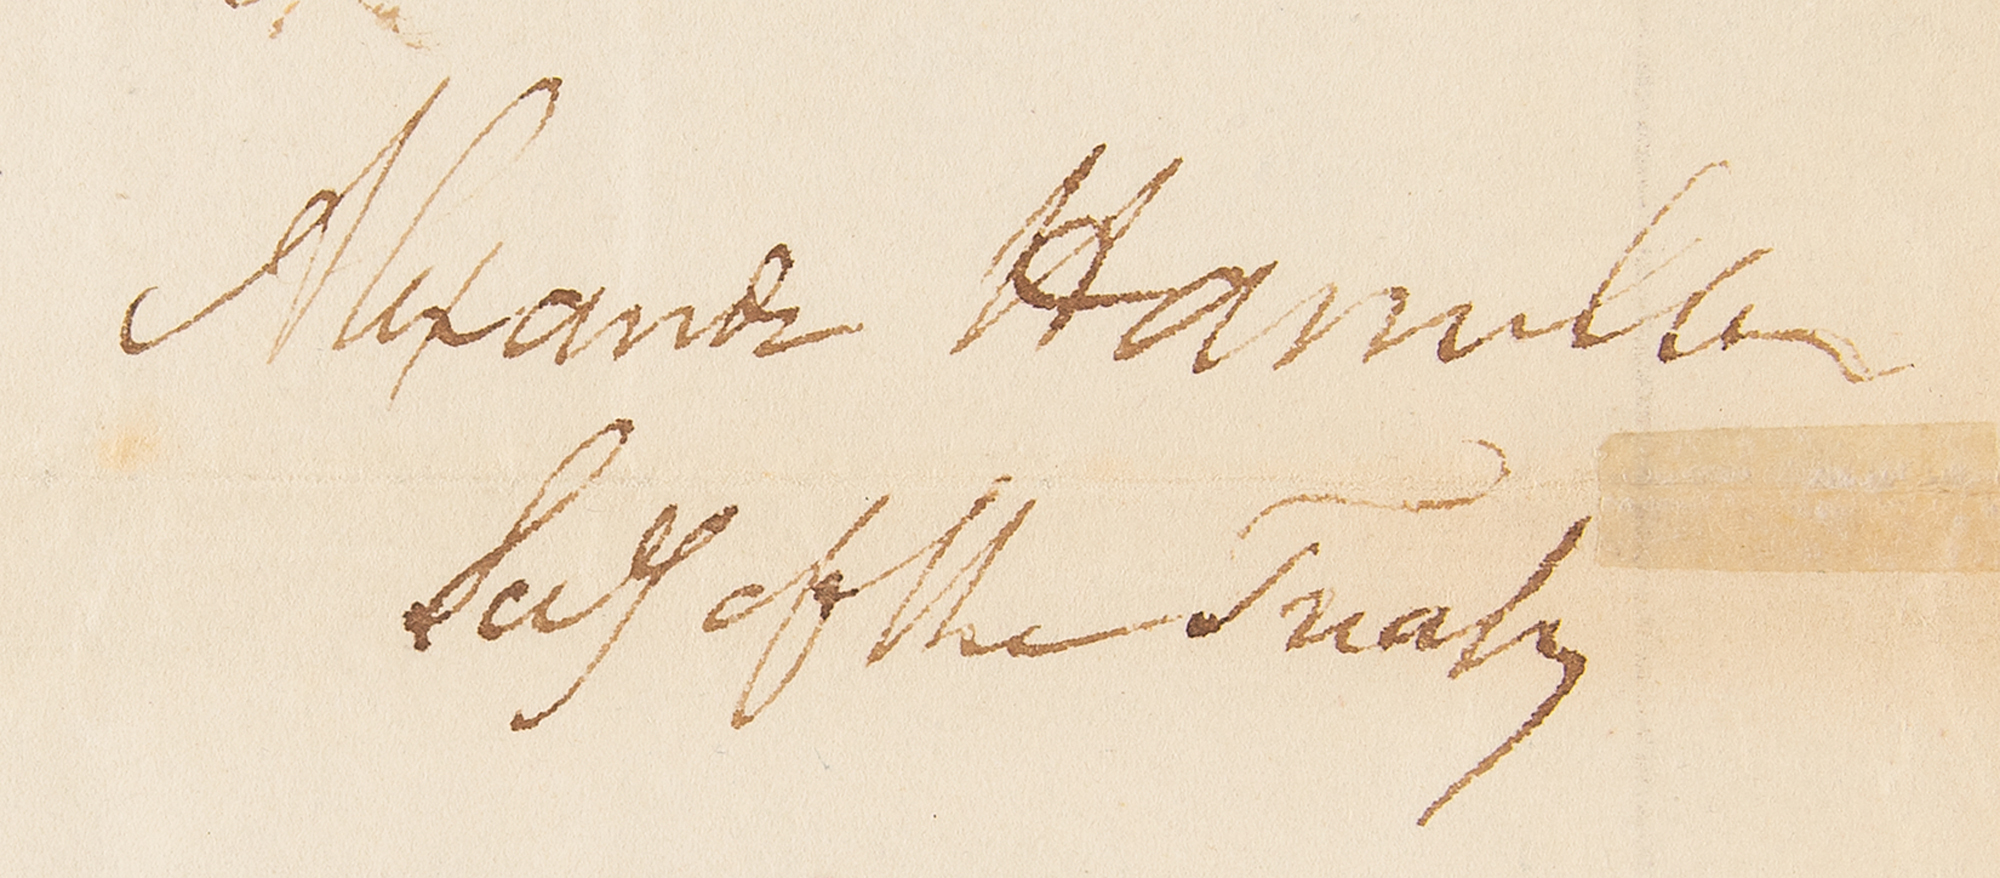 Alexander Hamilton
Secy of the Treasy